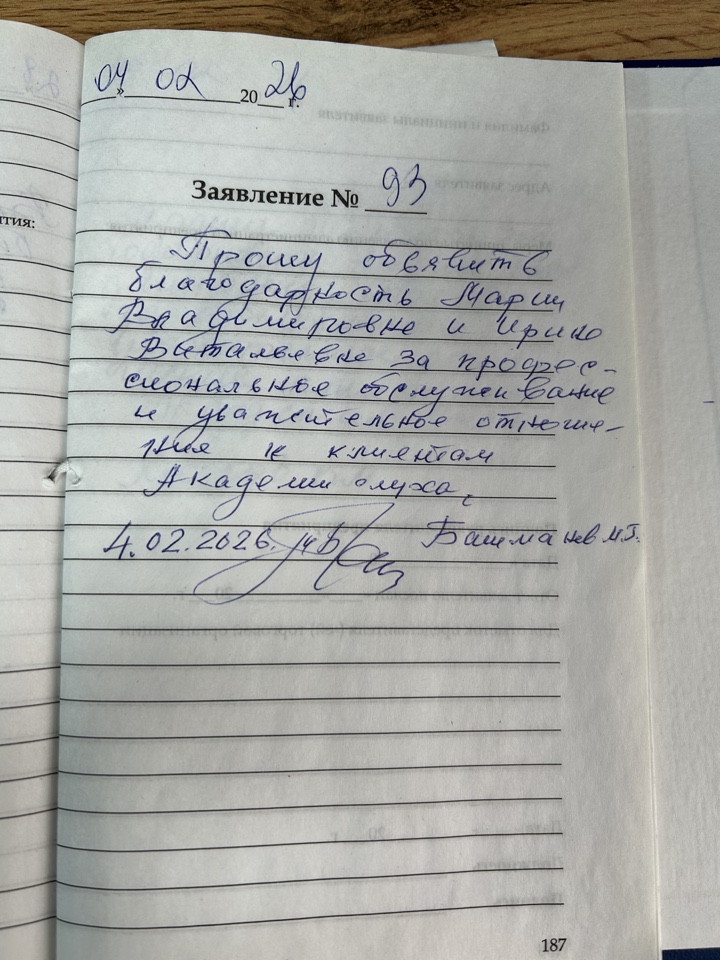 04 » 02 2026 г.
Заявление № 93
тия:
Прошу объявить
благодарность Марии
Владимировне и Ирине
Витальевне за профес-
сиональное обслуживание
и уважительное отноше-
ния к клиентам
Академии слуха.
4.02.2026. Башманов М.Г.
187